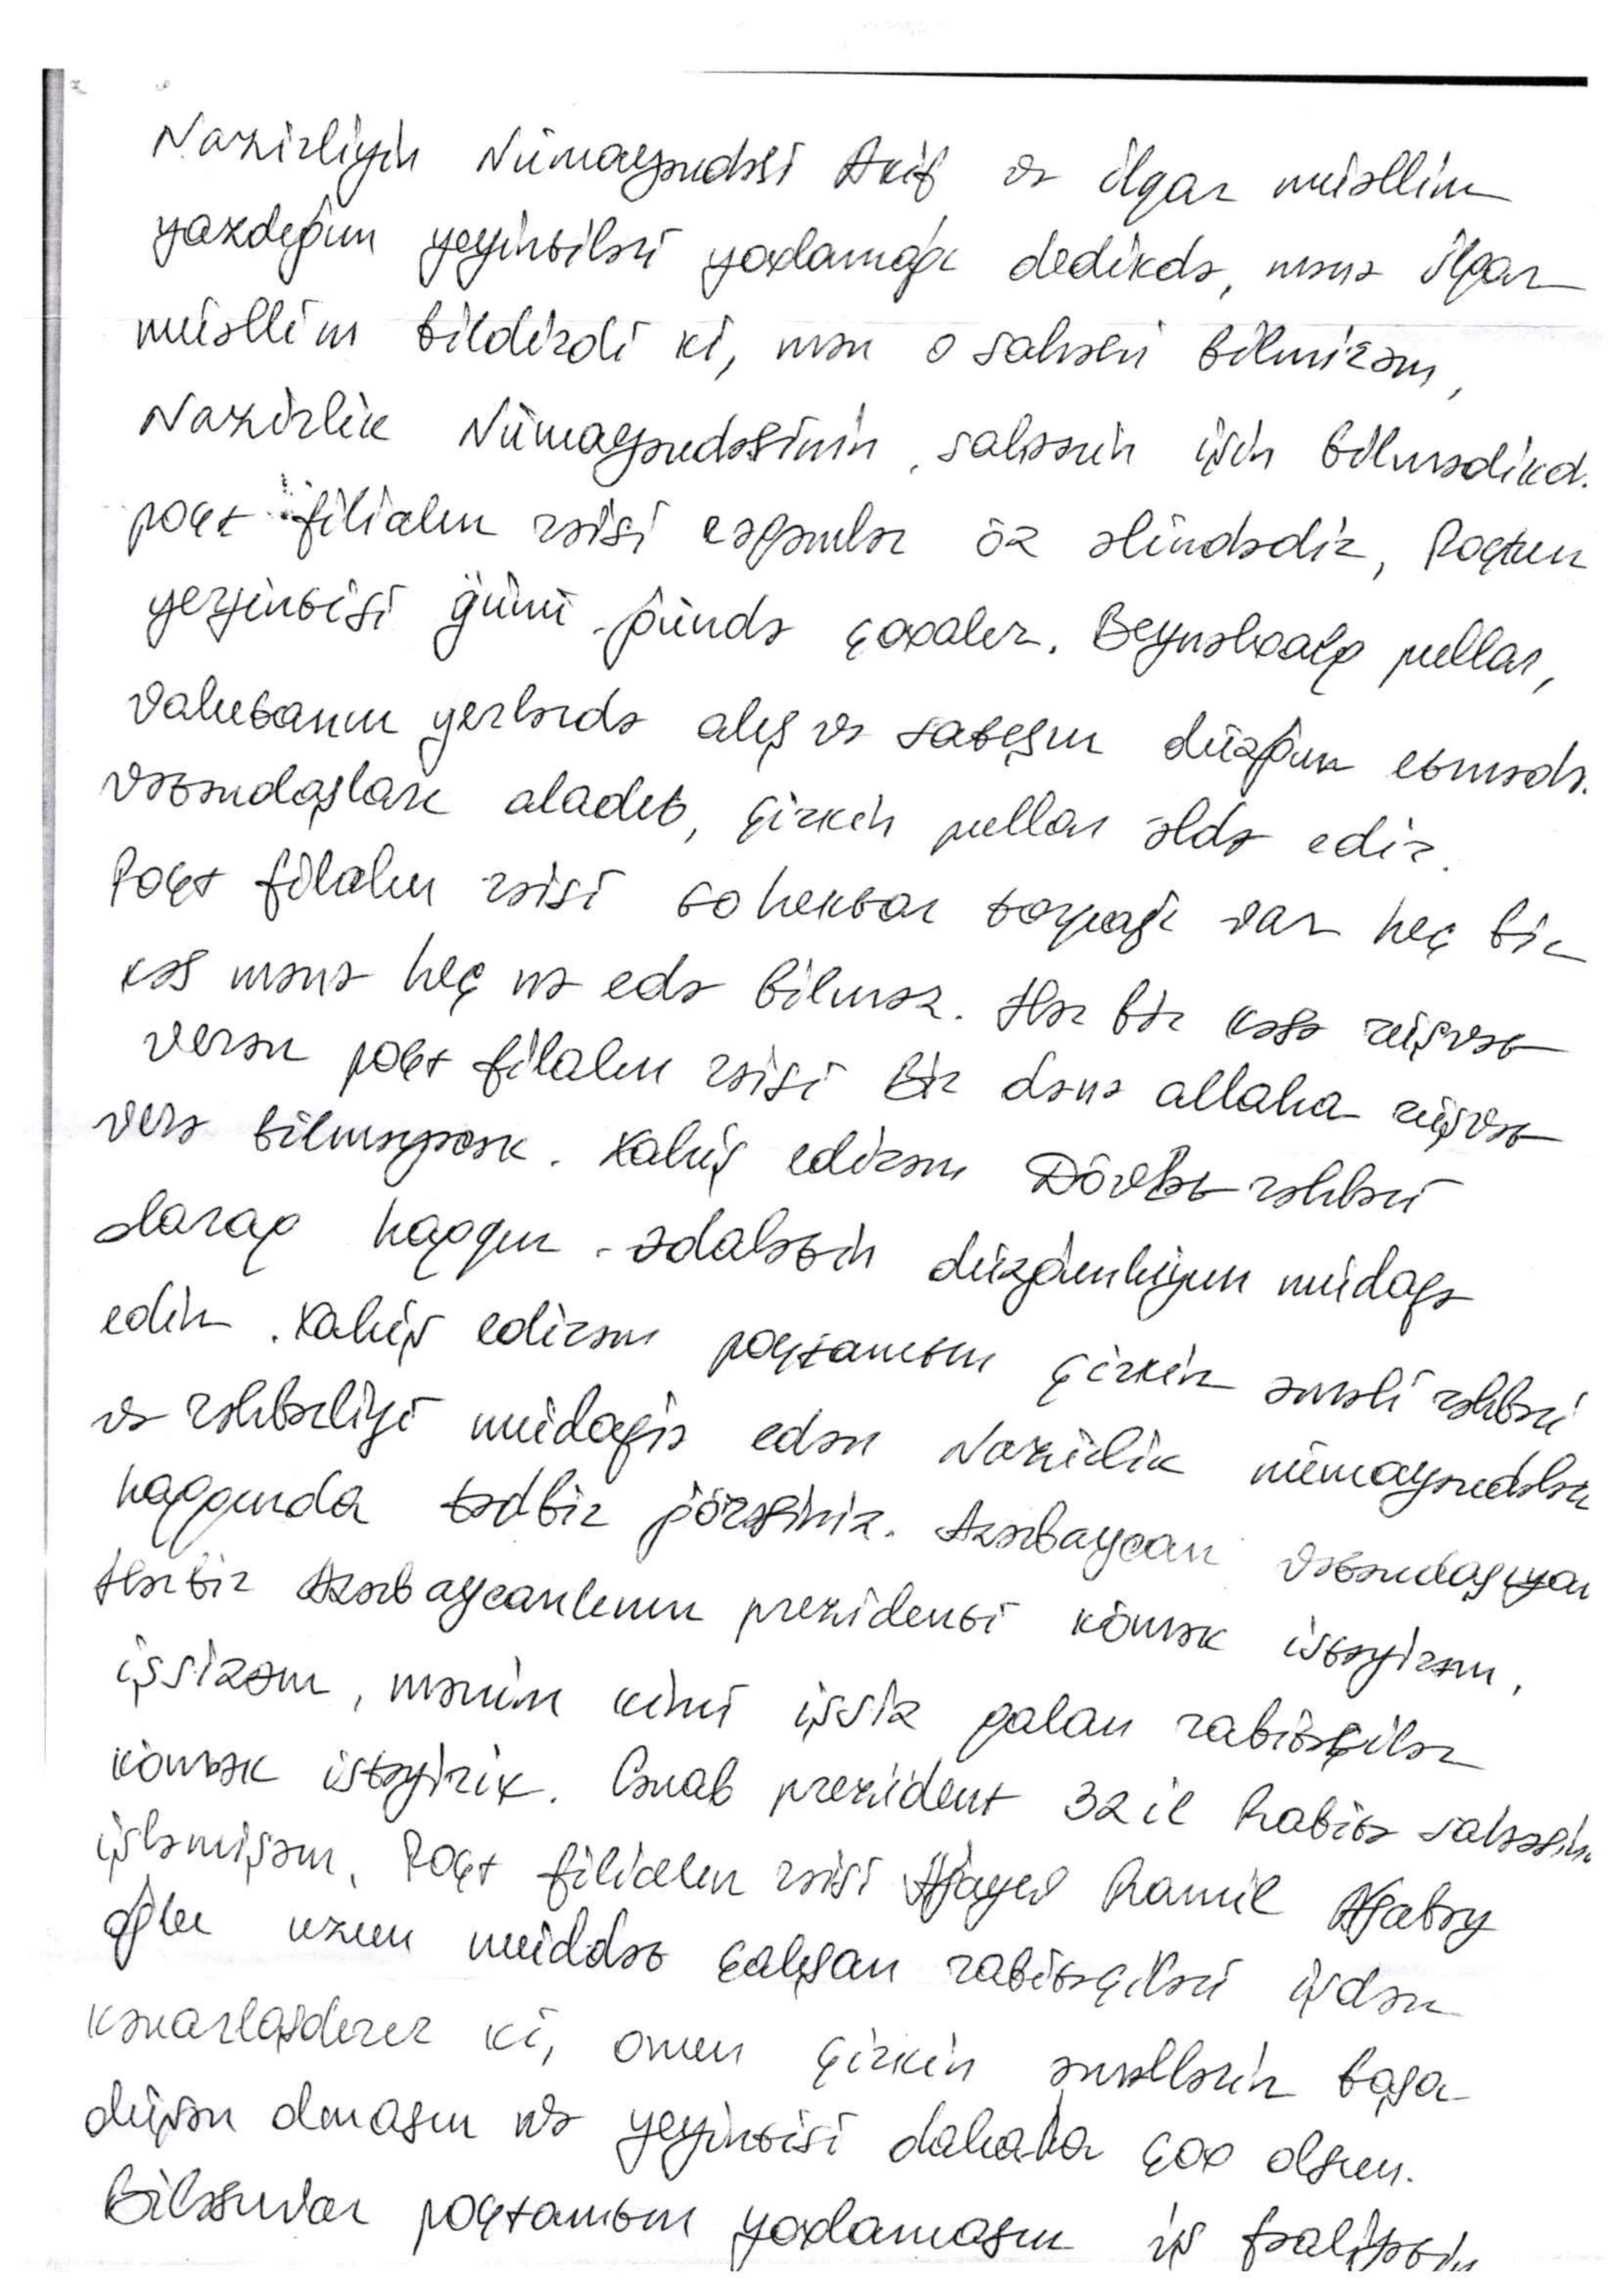 Nazirliyin Nümayəndəsi Akif və ilqar müəllim
yazdığım yeyintiləri yoxlamağı dedikdə, mənə ilqar
müəllim bildirdi ki, mən o sahəni bilmirəm,
Nazirlik Nümayəndəsinin, sahənin işin bilmədikd.
poçt filialın rəisi rəqəmlər öz əlindədir, Poçtun
yeyintisi günü-gündə çoxalır. Beynəlxalq pullar,
Valyutanın yerlərdə alış və satışın düzgün etmədə.
Vətəndaşları aladıb, çirkin pullar əldə edir.
Poçt filalın rəisi 60 hektar torpağı var heç bir
kəs mənə heç nə edə bilməz. Hər bir kəsə rüşvət
verən poçt filalın rəisi bir dənə allaha rüşvət
verə bilməyəcək. Xahiş edirəm Dövlət rəhbəri
olaraq haqqın-ədalətin düzgünlüyün müdafə
edin. Xahiş edirəm poçtamtın çirkin əməli rəhbəri
və rəhbərliyi müdafiə edən Nazirlik nümayəndələri
haqqında tədbir görəsiniz. Azərbaycan Vətəndaşıyam
Hərbir Azərbaycanlının prezidenti kömək istəyirəm,
işsizəm, mənim kimi işsiz qalan rabitəçilər
kömək istəyirik. Cənab prezident 32 il Rabitə sahəsin
işləmişəm. Poçt filialın rəisi Ağayev Ramil Ağabəy
oğlu uzun müddət çalışan rabitəçiləri işdən
kənarlaşdırır ki, onun çirkin əməllərin başa
düşən olmasın və yeyintisi dahada çox olsun.
Biləsuvar poçtamtın yoxlamasın iş fəaliyətin